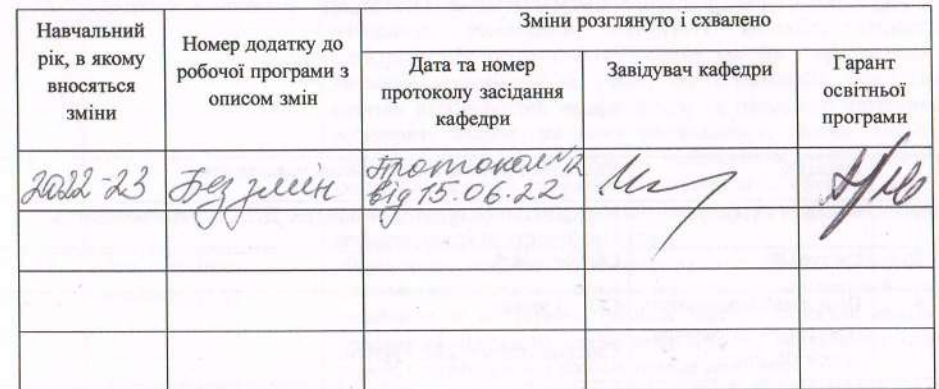 Навчальний
рік, в якому
вносяться
зміни
Номер додатку до
робочої програми з
описом змін
Зміни розглянуто і схвалено
Дата та номер
протоколу засідання
кафедри
Завідувач кафедри
Гарант
освітньої
програми
2022-23
Без змін
Протокол №12
від 15.06.22